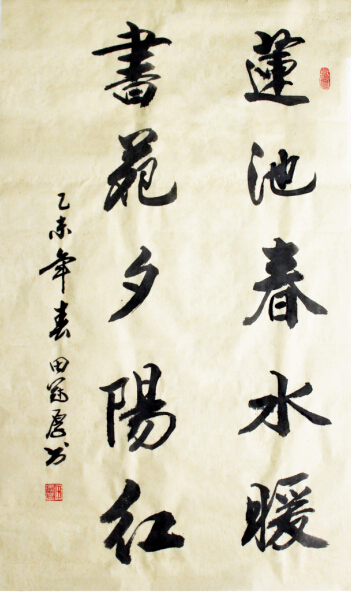 蓮池春水暖
書苑夕陽紅
乙未年春田冠慶书